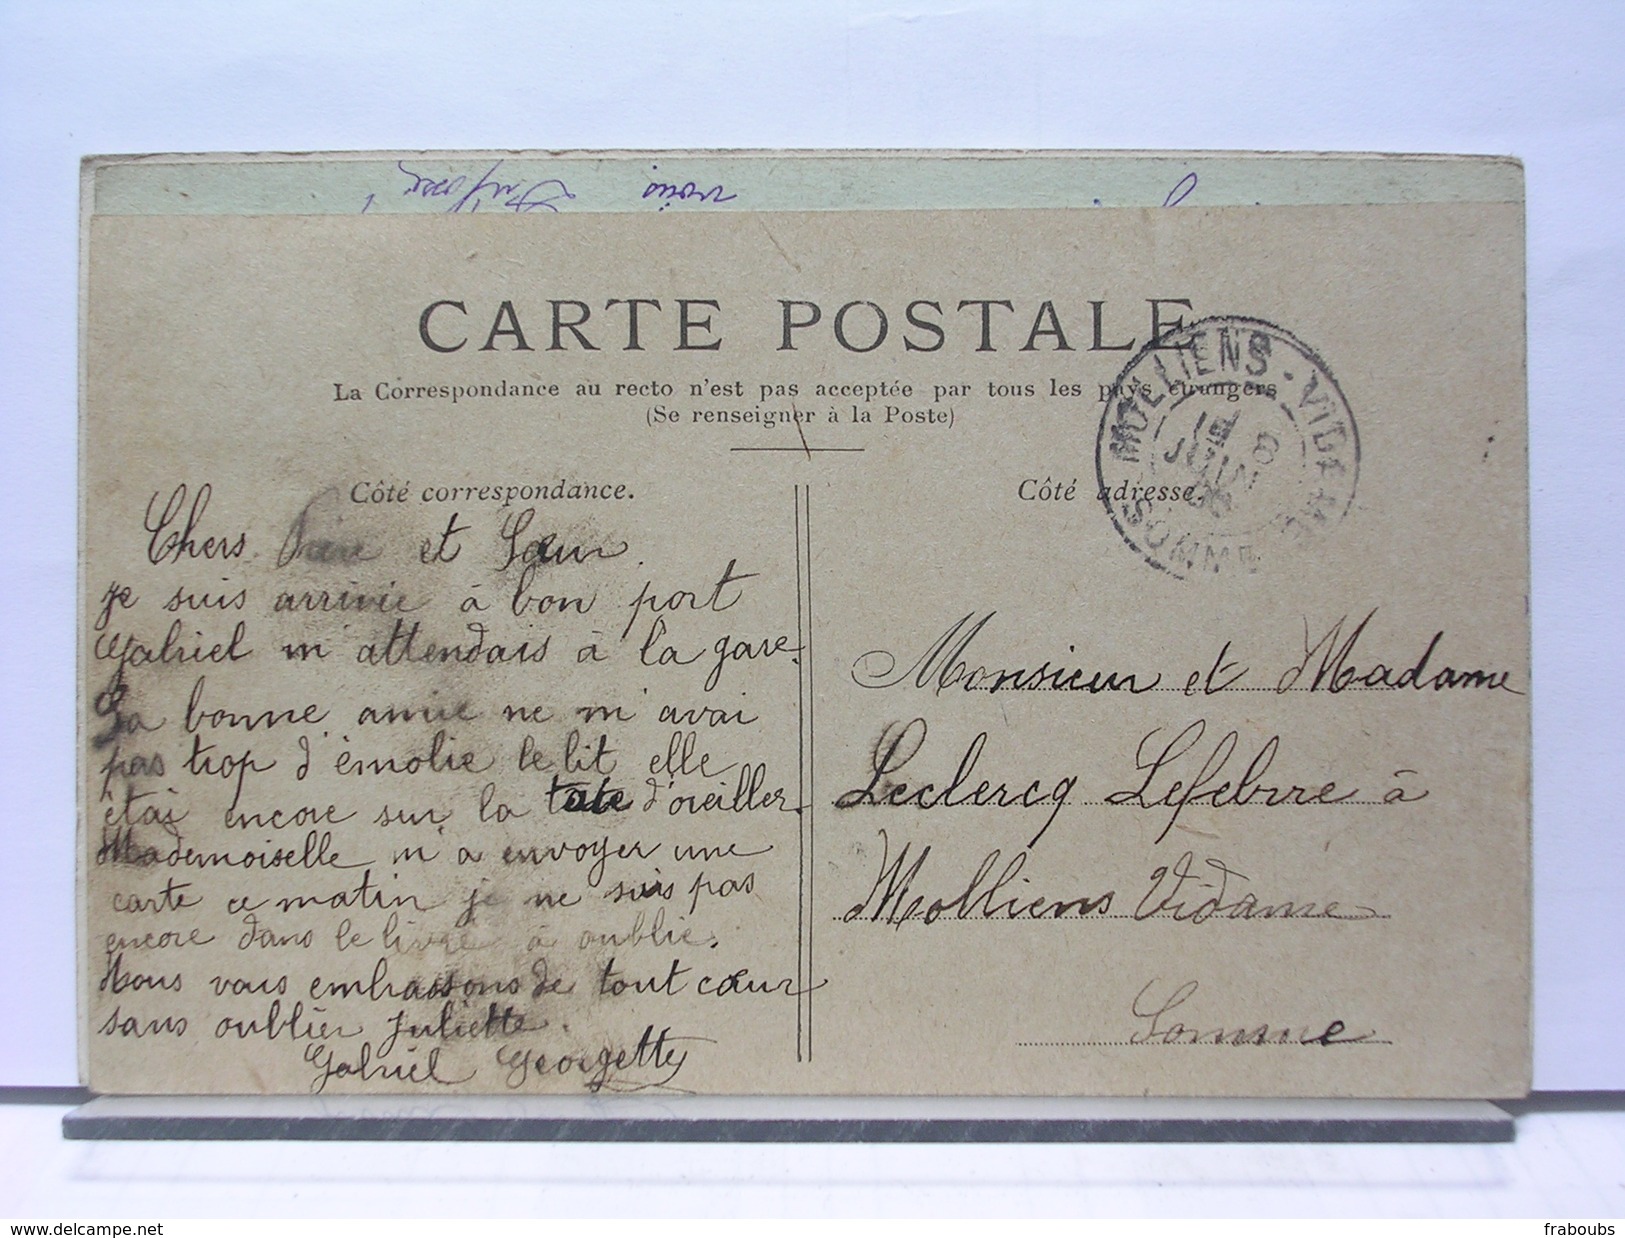 CARTE POSTALE
La Correspondance au recto n'est pas acceptée par tous les pays étrangers
(Se renseigner à la Poste)
MOLLIENS-VIDAME
JUIN
SOMME
Côté correspondance.
Chers Frère et Sœur
je suis arrivée à bon port
Gabriel m'attendais à la gare.
Sa bonne amie ne m'avai
pas trop d'émolie le lit elle
étai encore sur la tate d'oreiller.
Mademoiselle m'a envoyer une
carte ce matin je ne suis pas
encore dans le livre à oublie.
Nous vous embrassons de tout cœur
sans oublier Juliette.
Gabriel Georgette
Côté adresse.
Monsieur et Madame
Leclercq Lefebvre à
Molliens Vidame
Somme
www.delcampe.net
fraboubs